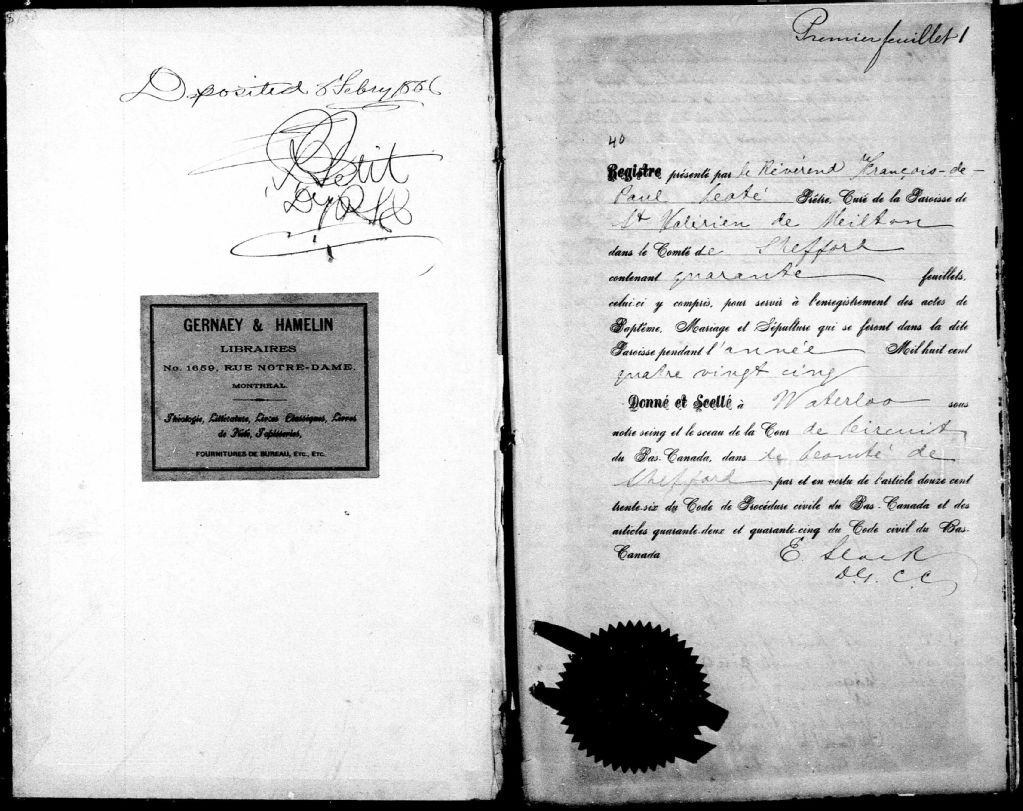 Deposited 6 Febry 1886
Petit
GERNAEY & HAMELIN
LIBRAIRES
No. 1659, RUE NOTRE-DAME.
MONTREAL.
Théologie, Littérature, Livres Classiques, Livres
de Piété, Tapisseries,
FOURNITURES DE BUREAU, Etc., Etc.
Premier feuillet 1
40
Registre présenté par le Révérend François-de-
Paul Coté Prêtre, Curé de la Paroisse de
St Valérien de Milton
dans le Comté de Shefford
contenant quarante feuillets,
celui-ci y compris, pour servir à l'enregistrement des actes de
Baptême, Mariage et Sépulture qui se feront dans la dite
Paroisse pendant l'année Mil huit cent
quatre vingt cinq
Donné et Scellé à Waterloo sous
notre seing et le sceau de la Cour de Circuit
du Bas-Canada, dans le Comté de
Shefford par et en vertu de l'article douze cent
trente-six du Code de Procédure civile du Bas-Canada et des
articles quarante-deux et quarante-cinq du Code civil du Bas-
Canada
E. Slack
C. C.